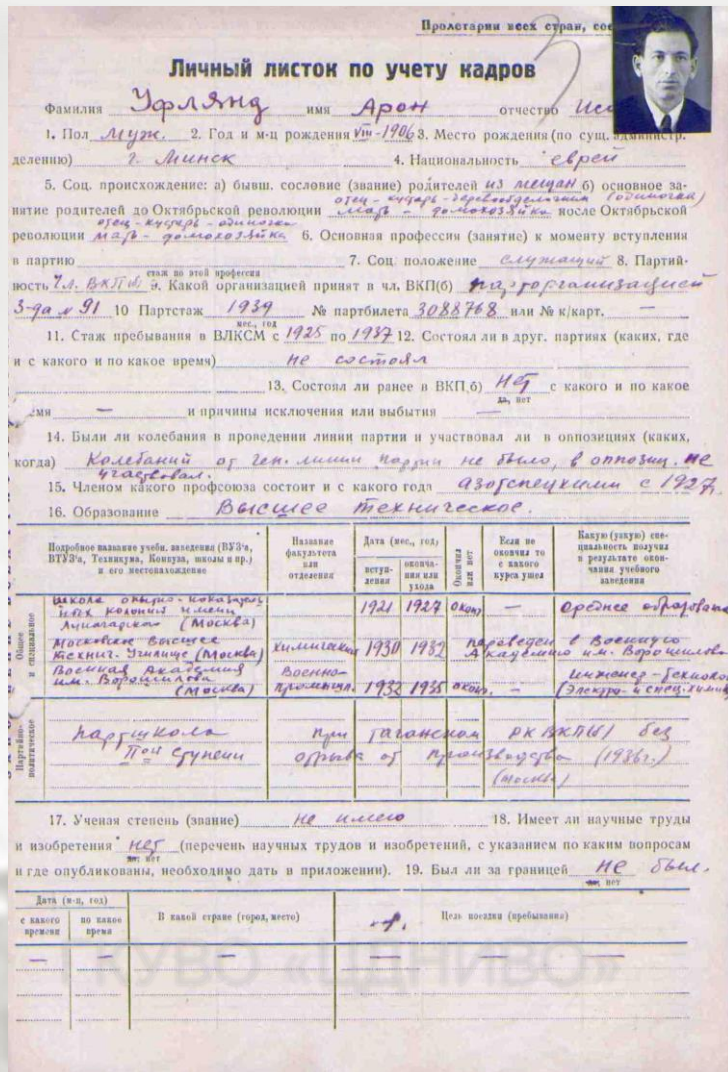 Пролетарии всех стран, сое
3
Личный листок по учету кадров
Фамилия Уфлянд имя Арон отчество Исо
1. Пол муж. 2. Год и м-ц рождения VIII-1906 3. Место рождения (по сущ. администр.
делению) г. Минск 4. Национальность еврей
5. Соц. происхождение: а) бывш. сословие (звание) родителей из мещан б) основное за-
отец-кустарь-деревообделочник (одиночка)
нятие родителей до Октябрьской революции мать - домохозяйка после Октябрьской
отец-кустарь-одиночка
революции мать-домохозяйка 6. Основная профессия (занятие) к моменту вступления
в партию 7. Соц. положение служащий 8. Партий-
стаж по этой профессии
ность чл. ВКП(б) 9. Какой организацией принят в чл. ВКП(б) парторганизацией
3-да № 91 10 Партстаж 1939 № партбилета 3088768 или № к/карт. —
мес., год
11. Стаж пребывания в ВЛКСМ с 1925 по 1937 12. Состоял ли в друг. партиях (каких, где
и с какого и по какое время) не состоял
13. Состоял ли ранее в ВКП(б) Нет с какого и по какое
да, нет
емя — и причины исключения или выбытия —
14. Были ли колебания в проведении линии партии и участвовал ли в оппозициях (каких,
когда) Колебаний от ген. линии партии не было, в оппозиц. не
участвовал.
15. Членом какого профсоюза состоит и с какого года азотспецхими с 1927г.
16. Образование Высшее техническое.
Подробное название учебн. заведения (ВУЗ'а, ВТУЗ'а, Техникума, Комвуза, школы и пр.) и его местонахождение
Название факультета или отделения
Дата (мес., год)
вступ-ления
оконча-ния или ухода
Окончил или нет
Если не окончил то с какого курса ушел
Какую (узкую) спе-циальность получил в результате окон-чания учебного заведения
Общее и специальное
Школа опытно-показатель
ных колоний имени
Луначарского (Москва) 1921 1927 окон — среднее образован
Московское Высшее
Технич. Училище (Москва) химический 1930 1932 переведен в Военную
Академию им. Ворошилова
Военная Академия
им. Ворошилова
(Москва) Военно-
промышл. 1932 1935 окон. — инженер-технолог
(Электро- и спец. химия
Партийно-политическое
партшкола при Таганском РК ВКП(б) без
IIой ступени отрыва от производства (1936г.)
(Москва)
17. Ученая степень (звание) не имею 18. Имеет ли научные труды
и изобретения нет (перечень научных трудов и изобретений, с указанием по каким вопросам
да, нет
и где опубликованы, необходимо дать в приложении). 19. Был ли за границей не был.
да, нет
Дата (м-ц, год)
с какого времени
по какое время
В какой стране (город, место)
Цель поездки (пребывания)
— — — — — —
ГКУВО «ЦДНИВО»